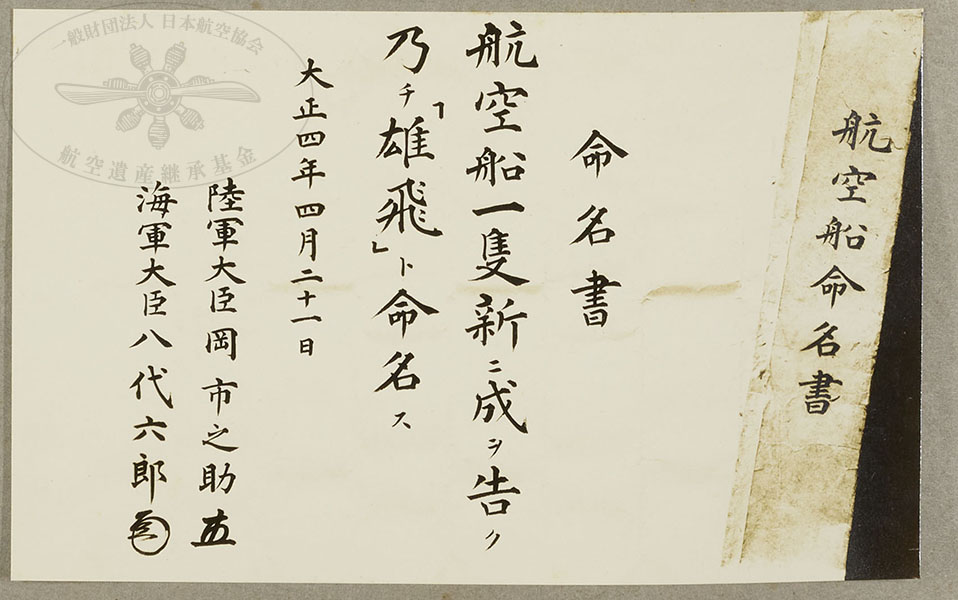 航空船命名書
命名書
航空船一隻新ニ成ヲ告ク
乃チ「雄飛」ト命名ス
大正四年四月二十一日
陸軍大臣岡市之助
海軍大臣八代六郎
一般財団法人 日本航空協会
航空遺産継承基金